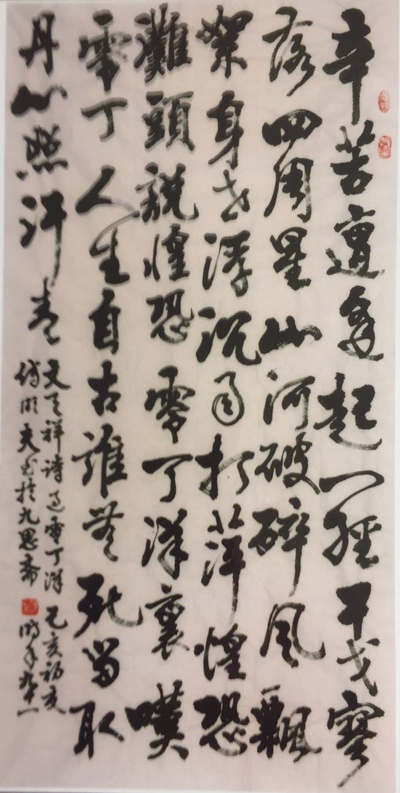 辛苦遭逢起一經干戈寥
落四周星山河破碎風飄
絮身世浮沉雨打萍惶恐
灘頭說惶恐零丁洋裏嘆
零丁人生自古誰無死留取
丹心照汗青
文天祥詩過零丁洋 己亥初夏
明夫書於九思齋